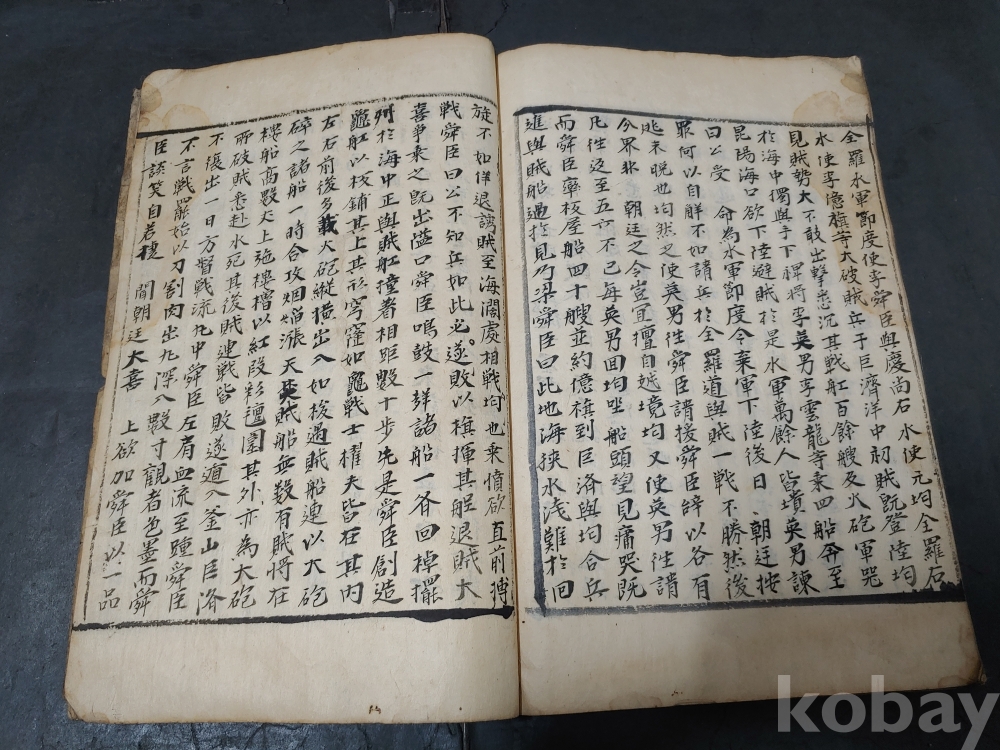 全羅水軍節度使李舜臣與慶尚右水使元均全羅右
水使李億旗等大破賊兵于巨濟洋中初賊既登陸均
見賊勢大不敢出擊悉沉其戰舡百餘艘及火砲軍器
於海中獨與手下裨將李英男李雲龍等乘四船奔至
昆陽海口欲下陸避賊於是水軍萬餘人皆潰英男諫
曰公受 命為水軍節度今棄軍下陸後日 朝廷按
罪何以自解不如請兵於全羅道與賊一戰不勝然後
逃未晚也均然之使英男徃舜臣請援舜臣辞以各有
分界非 朝廷之令豈宜擅自越境均又使英男徃請
凡徃返至五六不已每英男回均坐船頭望見痛哭既
而舜臣率板屋船四十艘並約億旗到巨済與均合兵
進與賊船遇於見乃梁舜臣曰此地海挾水浅難於回
旋不如佯退誘賊至海濶處相戦均也乘憤欲直前搏
戦舜臣曰公不知兵如此必敗遂以旗揮其船退賊大
喜爭乘之既出隘口舜臣鳴鼓一聲諸船一齐回掉擺
列於海中正與賊舡撞着相距數十步先是舜臣創造
龜舡以板鋪其上其形穹窿如龜戦士櫂夫皆在其内
左右前後多載火砲縱横出入如梭遇賊船連以大砲
碎之諸船一時合攻烟焰漲天焚賊船無数有賊将在
樓船高數丈上施樓櫓以紅段彩氊圍其外亦為大砲
所破賊悉赴水死其後賊連戦皆敗遂遁入釜山巨済
不復出一日方督戦流丸中舜臣左肩血流至踵舜臣
不言戦罷始以刀割肉出丸深入數寸觀者色墨而舜
臣談笑自若捷 聞朝廷大喜 上欲加舜臣以一品
kobay